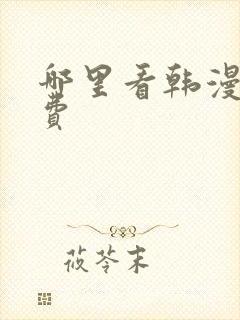 哪里看韩漫
费
莜苓末